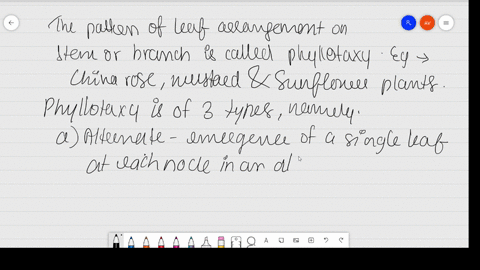 The pattern of leaf arrangement on
stem or branch is called phyllotaxy. Eg →
China rose, mustard & Sunflower plants.
Phyllotaxy is of 3 types, namely.
a) Alternate - emergence of a single leaf
at each node in an al